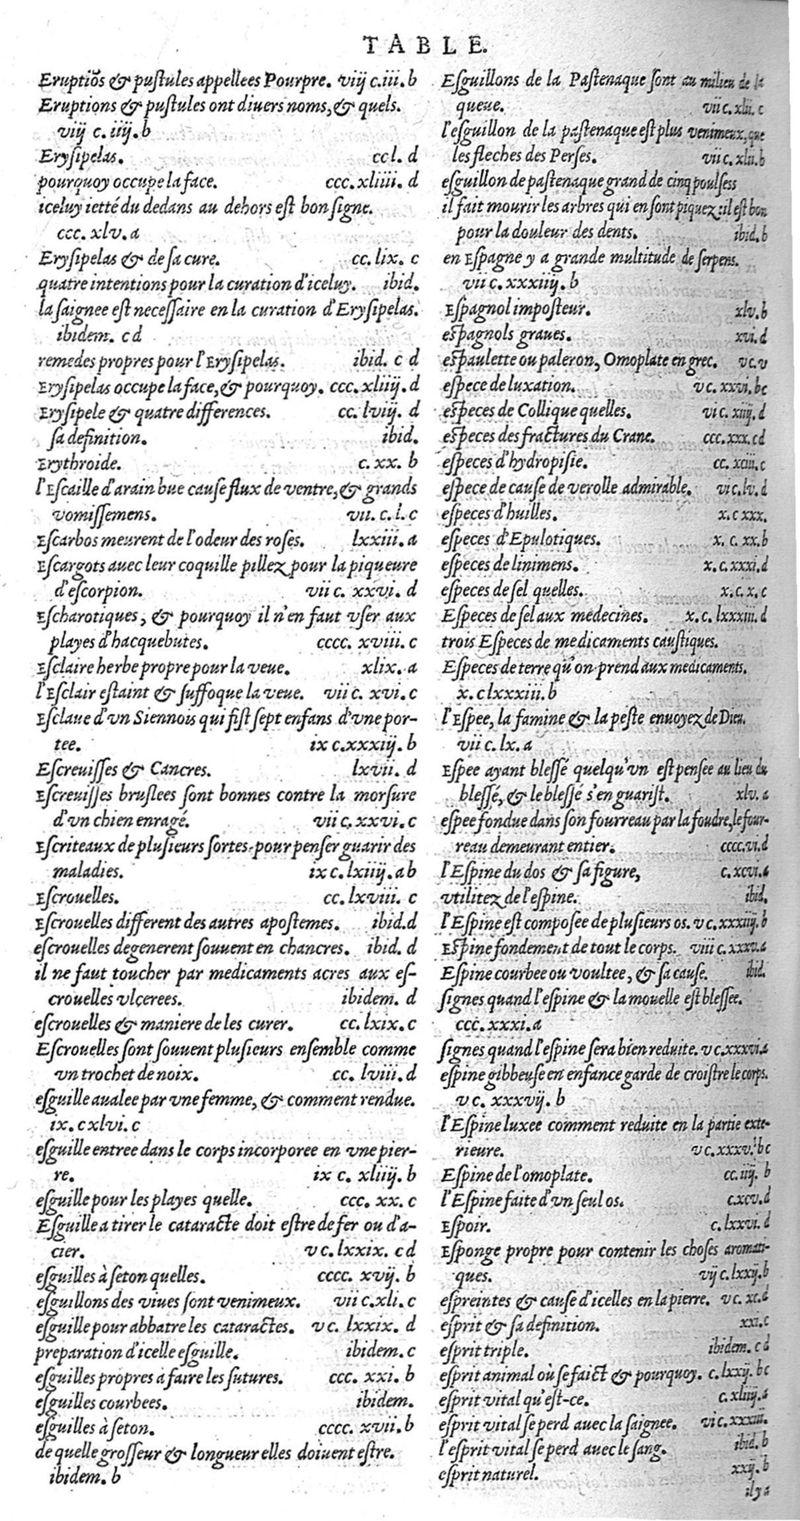 TABLE.
Eruptiõs & pustules appellees Pourpre. viij c.iii.b
Eruptions & pustules ont diuers noms, & quels.
viij c. iiij. b
Erysipelas. ccl. d
pourquoy occupe la face. ccc. xliiii. d
iceluy ietté du dedans au dehors est bon signe.
ccc. xlv. a
Erysipelas & de sa cure. cc. lix. c
quatre intentions pour la curation d'iceluy. ibid.
la saignee est necessaire en la curation d'Erysipelas.
ibidem. c d
remedes propres pour l'Erysipelas. ibid. c d
Erysipelas occupe la face, & pourquoy. ccc. xliiij. d
Erysipele & quatre differences. cc. lviij. d
sa definition. ibid.
Erythroide. c. xx. b
l'Escaille d'arain bue cause flux de ventre, & grands
vomissemens. vii. c. l. c
Escarbos meurent de l'odeur des roses. lxxiii. a
Escargots auec leur coquille pillez pour la piqueure
d'escorpion. vii c. xxvi. d
Escharotiques, & pourquoy il n'en faut vser aux
playes d'hacquebutes. cccc. xviii. c
Esclaire herbe propre pour la veue. xlix. a
l'Esclair estaint & suffoque la veue. vii c. xvi. c
Esclaue d'vn Siennois qui fist sept enfans d'vne por-
tee. ix c. xxxiij. b
Escreuisses & Cancres. lxvii. d
Escreuisses bruslees sont bonnes contre la morsure
d'vn chien enragé. vii c. xxvi. c
Escriteaux de plusieurs sortes pour penser guarir des
maladies. ix c. lxiiij. a b
Escrouelles. cc. lxviii. c
Escrouelles different des autres apostemes. ibid. d
escrouelles degenerent souuent en chancres. ibid. d
il ne faut toucher par medicaments acres aux es-
crouelles vlcerees. ibidem. d
escrouelles & maniere de les curer. cc. lxix. c
Escrouelles sont souuent plusieurs ensemble comme
vn trochet de noix. cc. lviii. d
esguille aualee par vne femme, & comment rendue.
ix. c xlvi. c
esguille entree dans le corps incorporee en vne pier-
re. ix c. xliiij. b
esguille pour les playes quelle. ccc. xx. c
Esguille a tirer le cataracte doit estre de fer ou d'a-
cier. v c. lxxix. c d
esguilles à seton quelles. cccc. xvij. b
esguillons des viues sont venimeux. vii c. xli. c
esguille pour abbatre les cataractes. v c. lxxix. d
preparation d'icelle esguille. ibidem. c
esguilles propres à faire les sutures. ccc. xxi. b
esguilles courbees. ibidem.
esguilles à seton. cccc. xvii. b
de quelle grosseur & longueur elles doiuent estre.
ibidem. b
Esguillons de la Pastenaque sont au milieu de la
queue. vii c. xlii. c
l'esguillon de la pastenaque est plus venimeux, que
les fleches des Perses. vii c. xlii. b
esguillon de pastenaque grand de cinq poulsess
il fait mourir les arbres qui en sont piquez: il est bon
pour la douleur des dents. ibid. b
en Espagne y a grande multitude de serpens.
vii c. xxxiiij. b
Espagnol imposteur. xlv. b
espagnols graues. xvi. d
espaulette ou paleron, Omoplate en grec. v c. v
espece de luxation. v c. xxvi. b c
especes de Collique quelles. vi c. xiiij. d
especes des fractures du Crane. ccc. xxx. c d
especes d'hydropisie. cc. xciii. c
espece de cause de verolle admirable. vi c. lv. d
especes d'huilles. x. c xxx.
especes d'Epulotiques. x. c. xx. b
especes de linimens. x. c. xxxi. d
especes de sel quelles. x. c. x. c
Especes de sel aux medecines. x. c. lxxxiii. d
trois Especes de medicaments caustiques.
Especes de terre qu'on prend aux medicaments.
x. c lxxxiii. b
l'Espee, la famine & la peste enuoyez de Dieu.
vii c. lx. a
Espee ayant blessé quelqu'vn est pensee au lieu du
blessé, & le blessé s'en guarist. xlv. a
espee fondue dans son fourreau par la foudre, le four-
reau demeurant entier. cccc. vi. d
l'Espine du dos & sa figure, c. xcvi. a
vtilitez de l'espine. ibid.
l'Espine est composee de plusieurs os. v c. xxxiiij. b
Espine fondement de tout le corps. viii c. xxxv. a
Espine courbee ou voultee, & sa cause. ibid.
signes quand l'espine & la mouelle est blessee.
ccc. xxxi. a
signes quand l'espine sera bien reduite. v c. xxxvi. a
espine gibbeuse en enfance garde de croistre le corps.
v c. xxxvij. b
l'Espine luxee comment reduite en la partie exte-
rieure. v c. xxxv. b c
Espine de l'omoplate. cc. iiij. b
l'Espine faite d'vn seul os. c. xcv. d
Espoir. c. lxxvi. d
Esponge propre pour contenir les choses aromati-
ques. vij c. lxxij. b
espreintes & cause d'icelles en la pierre. v c. xc. d
esprit & sa definition. xxi. c
esprit triple. ibidem. c d
esprit animal où se faict & pourquoy. c. lxxij. b c
esprit vital qu'est-ce. c. xliiij. a
esprit vital se perd auec la saignee. vi c. xxxiii.
l'esprit vital se perd auec le sang. ibid. b
esprit naturel. xxij. b
il y a